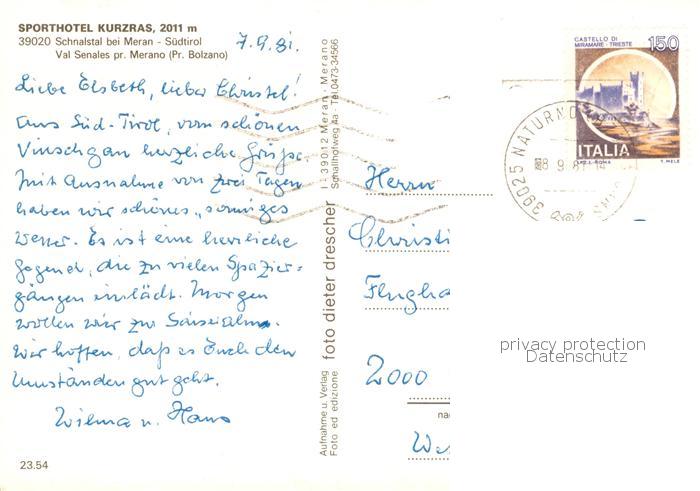 SPORTHOTEL KURZRAS, 2011 m
39020 Schnalstal bei Meran - Südtirol
Val Senales pr. Merano (Pr. Bolzano)
7.9.81.
Liebe Elsbeth, lieber Christel!
Aus Süd-Tirol, vom schönen
Vinschgau herzliche Grüße.
Mit Ausnahme von zwei Tagen
haben wir schönes, sonniges
Wetter. Es ist eine herrliche
Gegend, die zu vielen Spazier-
gängen einlädt. Morgen
wollen wir zur Saiseralm.
Wir hoffen, daß es Euch den
Umständen gut geht.
Wilma u. Hans
23.54
Aufnahme u. Verlag
Foto ed edizione
foto dieter drescher
I-39012 Meran - Merano
Schallhofweg 4a Tel. 0473-34566
CASTELLO DI
MIRAMARE - TRIESTE
150
ITALIA
I.P.Z.S. - ROMA
T. MELE
39025 NATURNO
8 9.81-14
Herrn
Christi
Flugha
2000
We
privacy protection
Datenschutz